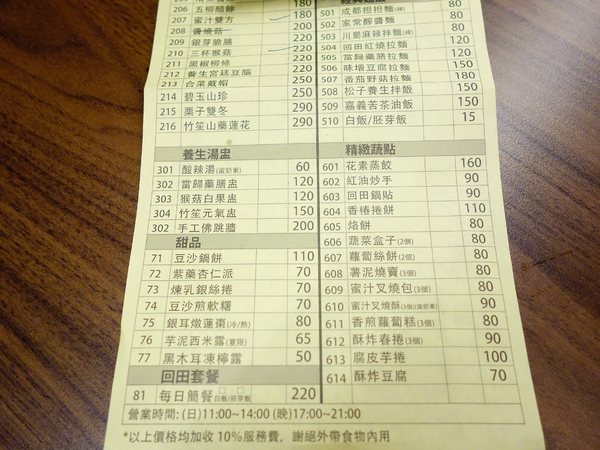 180
207 蜜汁雙方 180
208 醬燒菇 200
209 銀芽脆膳 220
210 三杯猴菇 220
211 黑椒柳條 220
212 養生宮廷豆腦 250
213 合菜戴帽 250
214 碧玉山珍 250
215 栗子雙冬 290
216 竹笙山藥蓮花 290
養生湯盅
301 酸辣湯(蛋奶素) 60
302 當歸藥膳盅 120
303 猴菇白果盅 120
304 竹笙元氣盅 150
302 手工佛跳牆 200
甜品
71 豆沙鍋餅 110
72 紫藥杏仁派 70
73 煉乳銀絲捲 70
74 豆沙煎軟糯 70
75 銀耳燉蓮棗(冷/熱) 80
76 芋泥西米露(夏限) 65
77 黑木耳凍檸露 50
回田套餐
81 每日簡餐 白飯/胚芽飯 220
501 成都担担麵(辣) 80
502 家常醡醬麵 80
503 川蜀麻辣拌麵(辣) 80
504 回田紅燒拉麵 120
505 當歸藥膳拉麵 120
506 味噌豆腐拉麵 150
507 番茄野菇拉麵 180
508 松子養生拌餅 150
509 嘉義苦茶油飯 150
510 白飯/胚芽飯 15
精緻蔬點
601 花素蒸餃 160
602 紅油炒手 90
603 回田鍋貼 90
604 香椿捲餅 110
605 烙餅 80
606 蔬菜盒子(2個) 80
607 蘿蔔絲餅(2個) 80
608 薯泥燒賣(3個) 80
609 蜜汁叉燒包(3個) 80
610 蜜汁叉燒酥(3個)(蛋奶素) 90
611 香煎蘿蔔糕(3個) 80
612 酥炸春捲(3個) 90
613 腐皮芋捲 100
614 酥炸豆腐 70
營業時間: (日)11:00~14:00 (晚)17:00~21:00
*以上價格均加收 10%服務費，謝絕外帶食物內用